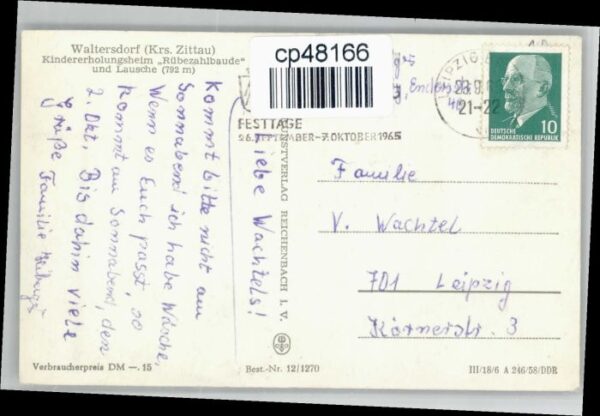 Waltersdorf (Krs. Zittau)
Kindererholungsheim „Rübezahlbaude"
und Lausche (792 m)
cp48166
LEIPZIG
21-22
FESTTAGE
26. SEPTEMBER-7. OKTOBER 1965
DEUTSCHE
DEMOKRATISCHE REPUBLIK
10
Liebe Wachtels!
Kommt bitte nicht am
Sonnabend ich habe Wäsche,
Wenn es Euch passt, so
kommt am Sonnabend, den
2. Okt. Bis dahin viele
Grüße Familie
KUNSTVERLAG REICHENBACH I. V.
Familie
V. Wachtel
701 Leipzig
Körnerstr. 3
Verbraucherpreis DM —.15
Best.-Nr. 12/1270
III/18/6 A 246/58/DDR